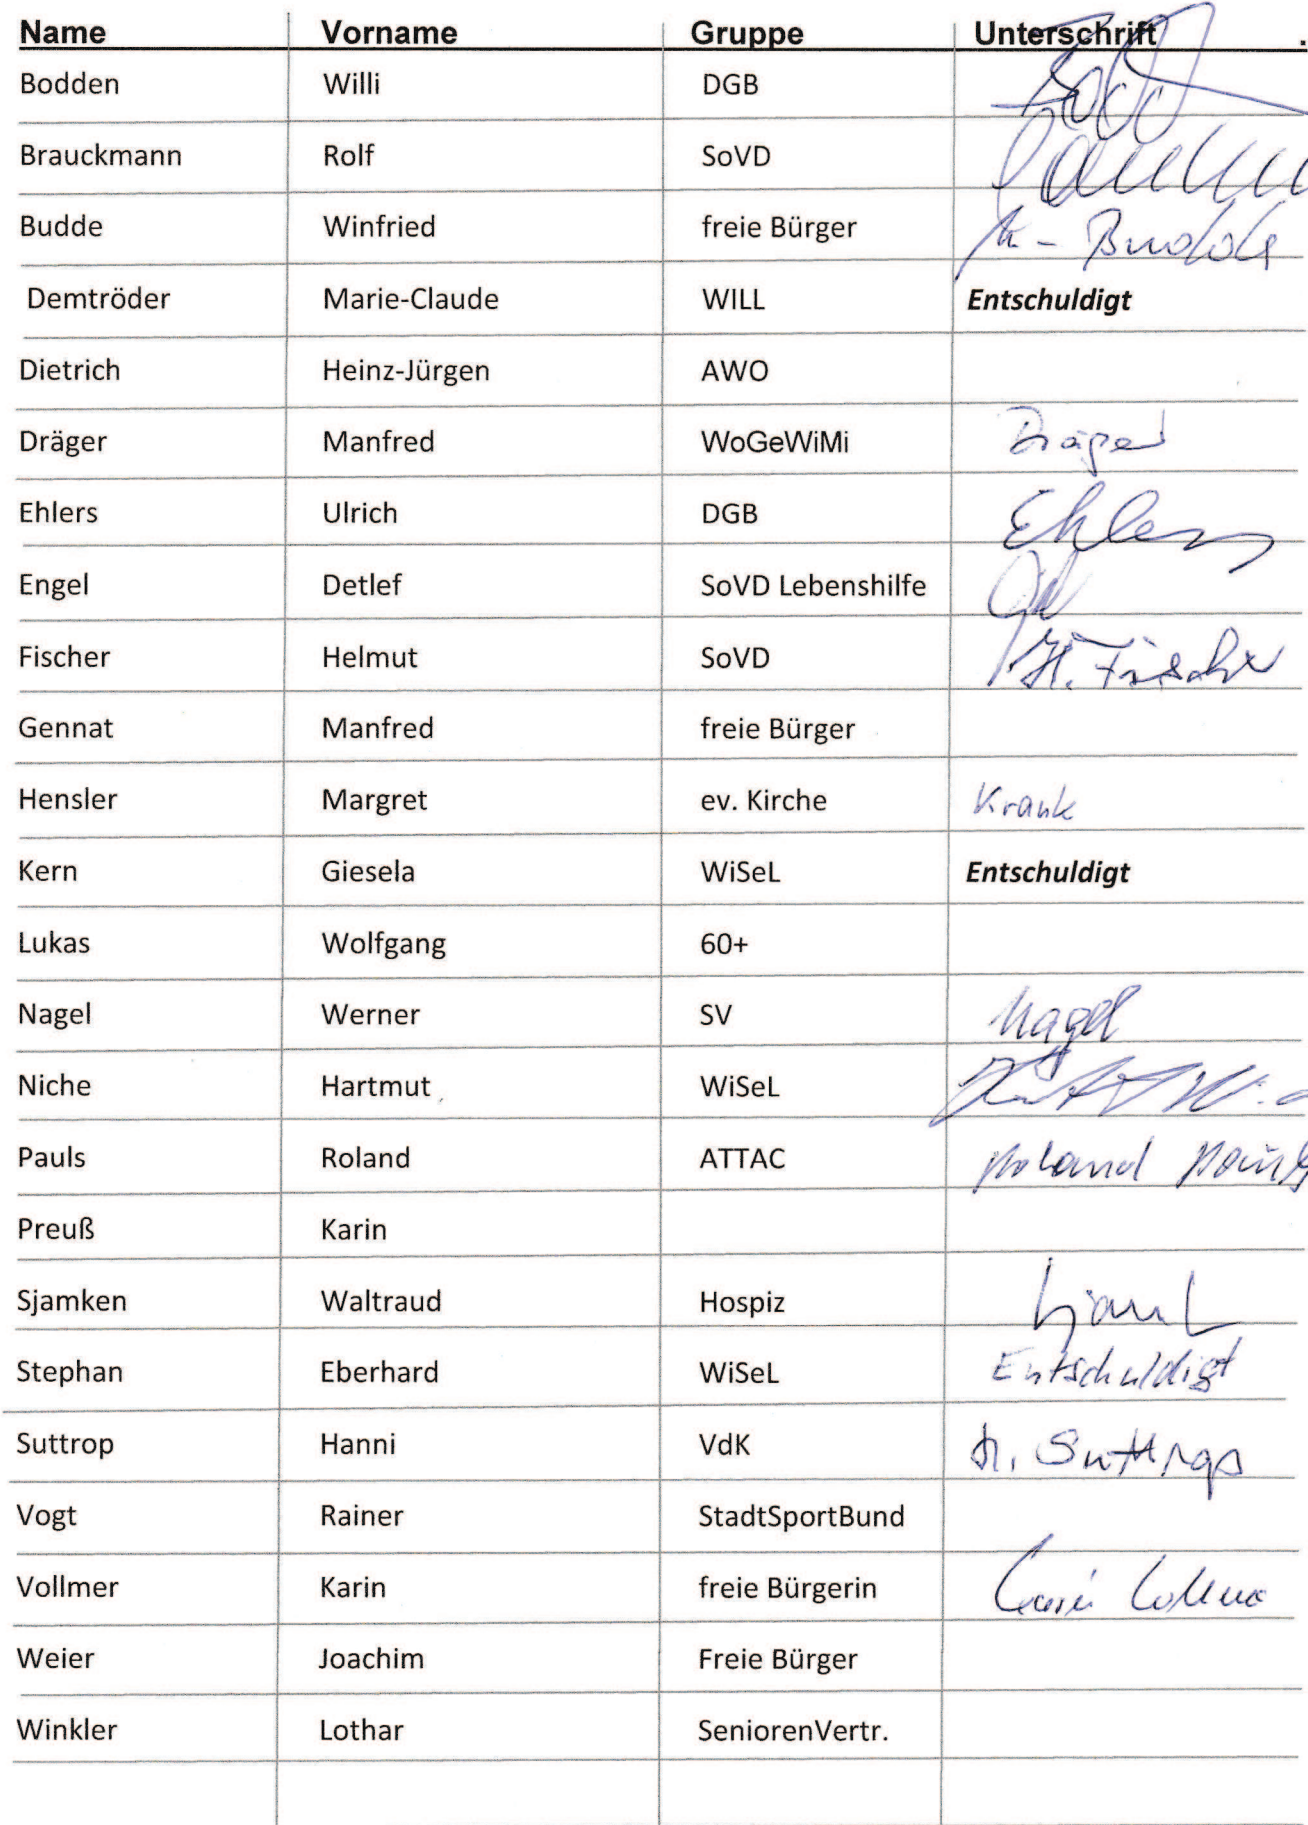 Name Vorname Gruppe Unterschrift .
Bodden Willi DGB
Brauckmann Rolf SoVD
Budde Winfried freie Bürger Budde
Demtröder Marie-Claude WILL Entschuldigt
Dietrich Heinz-Jürgen AWO
Dräger Manfred WoGeWiMi Dräger
Ehlers Ulrich DGB Ehlers
Engel Detlef SoVD Lebenshilfe
Fischer Helmut SoVD H. Fischer
Gennat Manfred freie Bürger
Hensler Margret ev. Kirche Krank
Kern Giesela WiSeL Entschuldigt
Lukas Wolfgang 60+
Nagel Werner SV Nagel
Niche Hartmut WiSeL
Pauls Roland ATTAC Roland Pauls
Preuß Karin
Sjamken Waltraud Hospiz
Stephan Eberhard WiSeL Entschuldigt
Suttrop Hanni VdK H. Suttrop
Vogt Rainer StadtSportBund
Vollmer Karin freie Bürgerin
Weier Joachim Freie Bürger
Winkler Lothar SeniorenVertr.